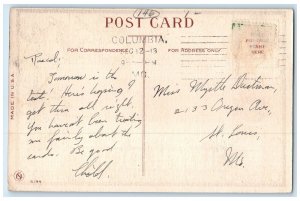 140
POST CARD
COLUMBIA,
FOR CORRESPONDENCE
FOR ADDRESS ONLY
12-13
MO.
Pascal;
Tomorrow is the
test! Here's hoping I
get thru all right.
You haven't been treating
me fairly about the
cards. Be good
Child.
Miss Myrtle
2133 Oregon Ave,
St. Louis,
Mo.
MADE IN U.S.A.